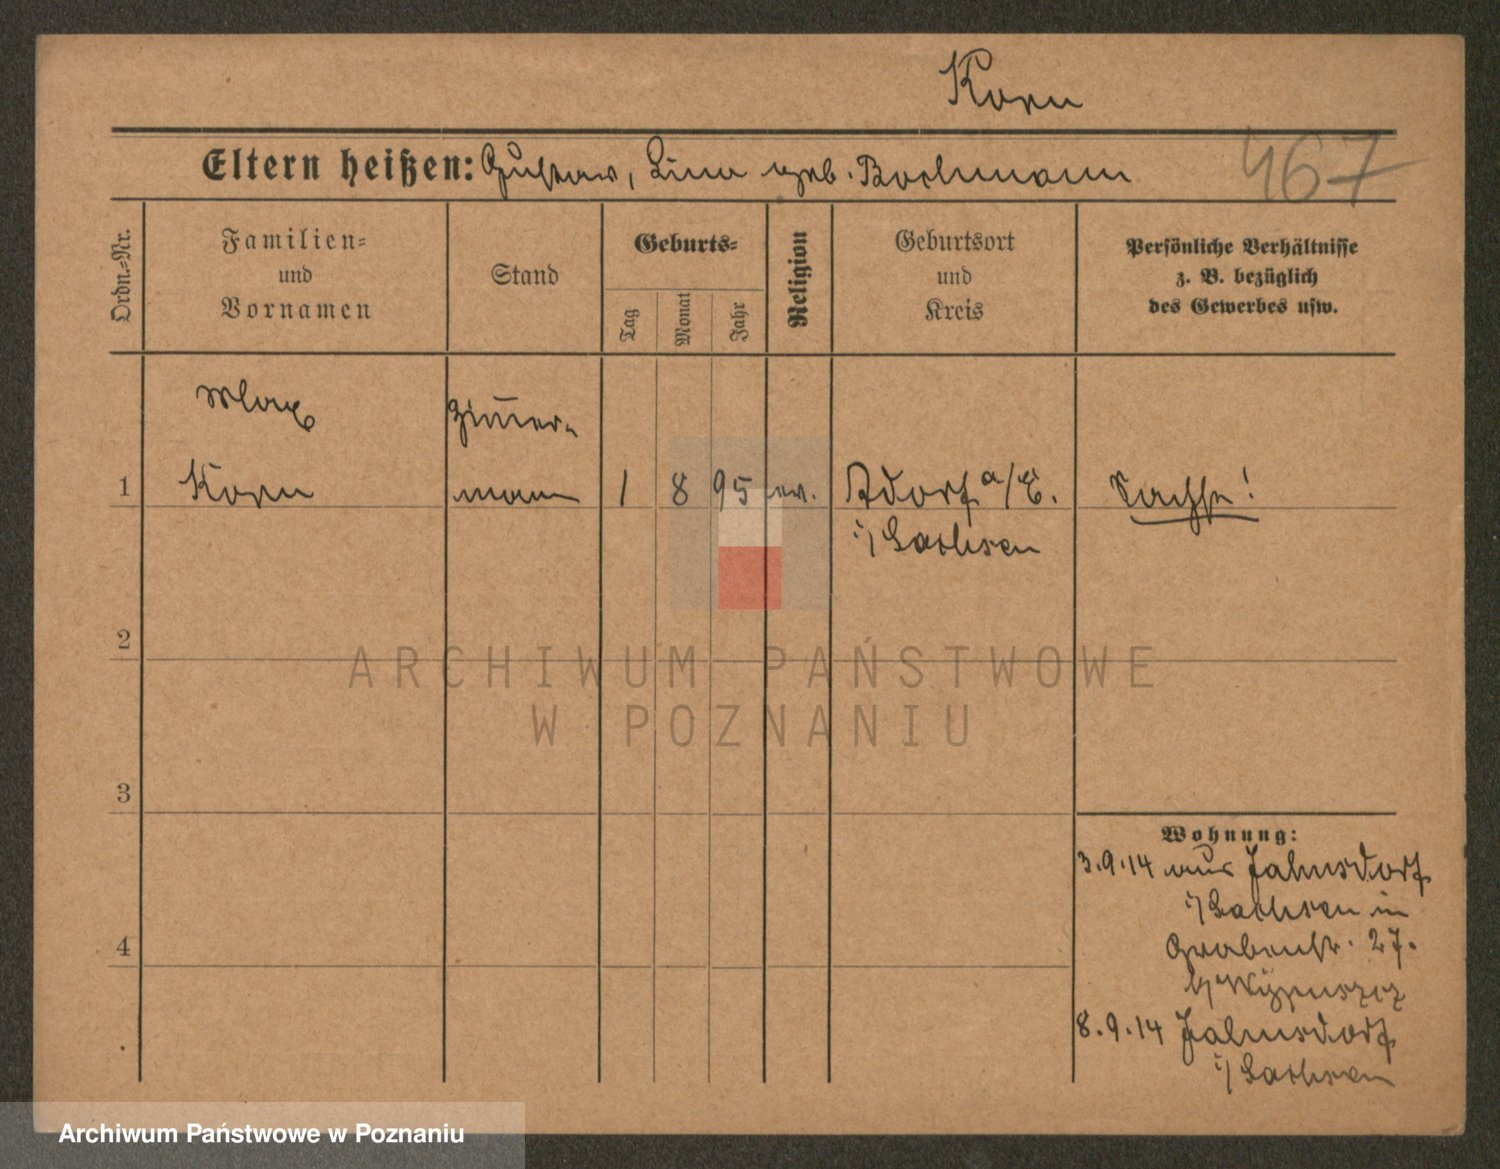 Korn
Eltern heißen: Gustav, Lina geb. Bochmann
467
Ordn.-Nr.
Familien-
und
Vornamen
Stand
Geburts-
Tag
Monat
Jahr
Religion
Geburtsort
und
Kreis
Persönliche Verhältnisse
z. B. bezüglich
des Gewerbes usw.
Max
Zimmer-
1 Korn mann 1 8 95 ev. Adorf a/E. Sachse!
i/ Sachsen
2
ARCHIWUM PAŃSTWOWE
W POZNANIU
3
Wohnung:
3.9.14 aus Jahnsdorf
i/ Sachsen in
Grabenstr. 27.
4
8.9.14 Jahnsdorf
i/ Sachsen
Archiwum Państwowe w Poznaniu